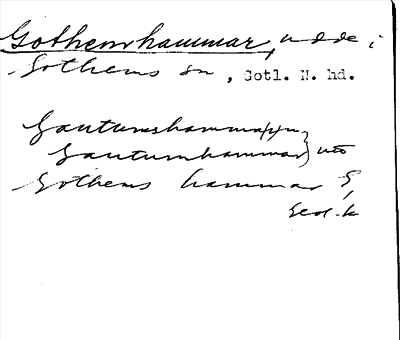 Gothemhammar, udde i
Gothems sn, Gotl. N. hd.
Gautumshammarn
Gautumhammar } uto
Gothems hammar G,
Geol. k